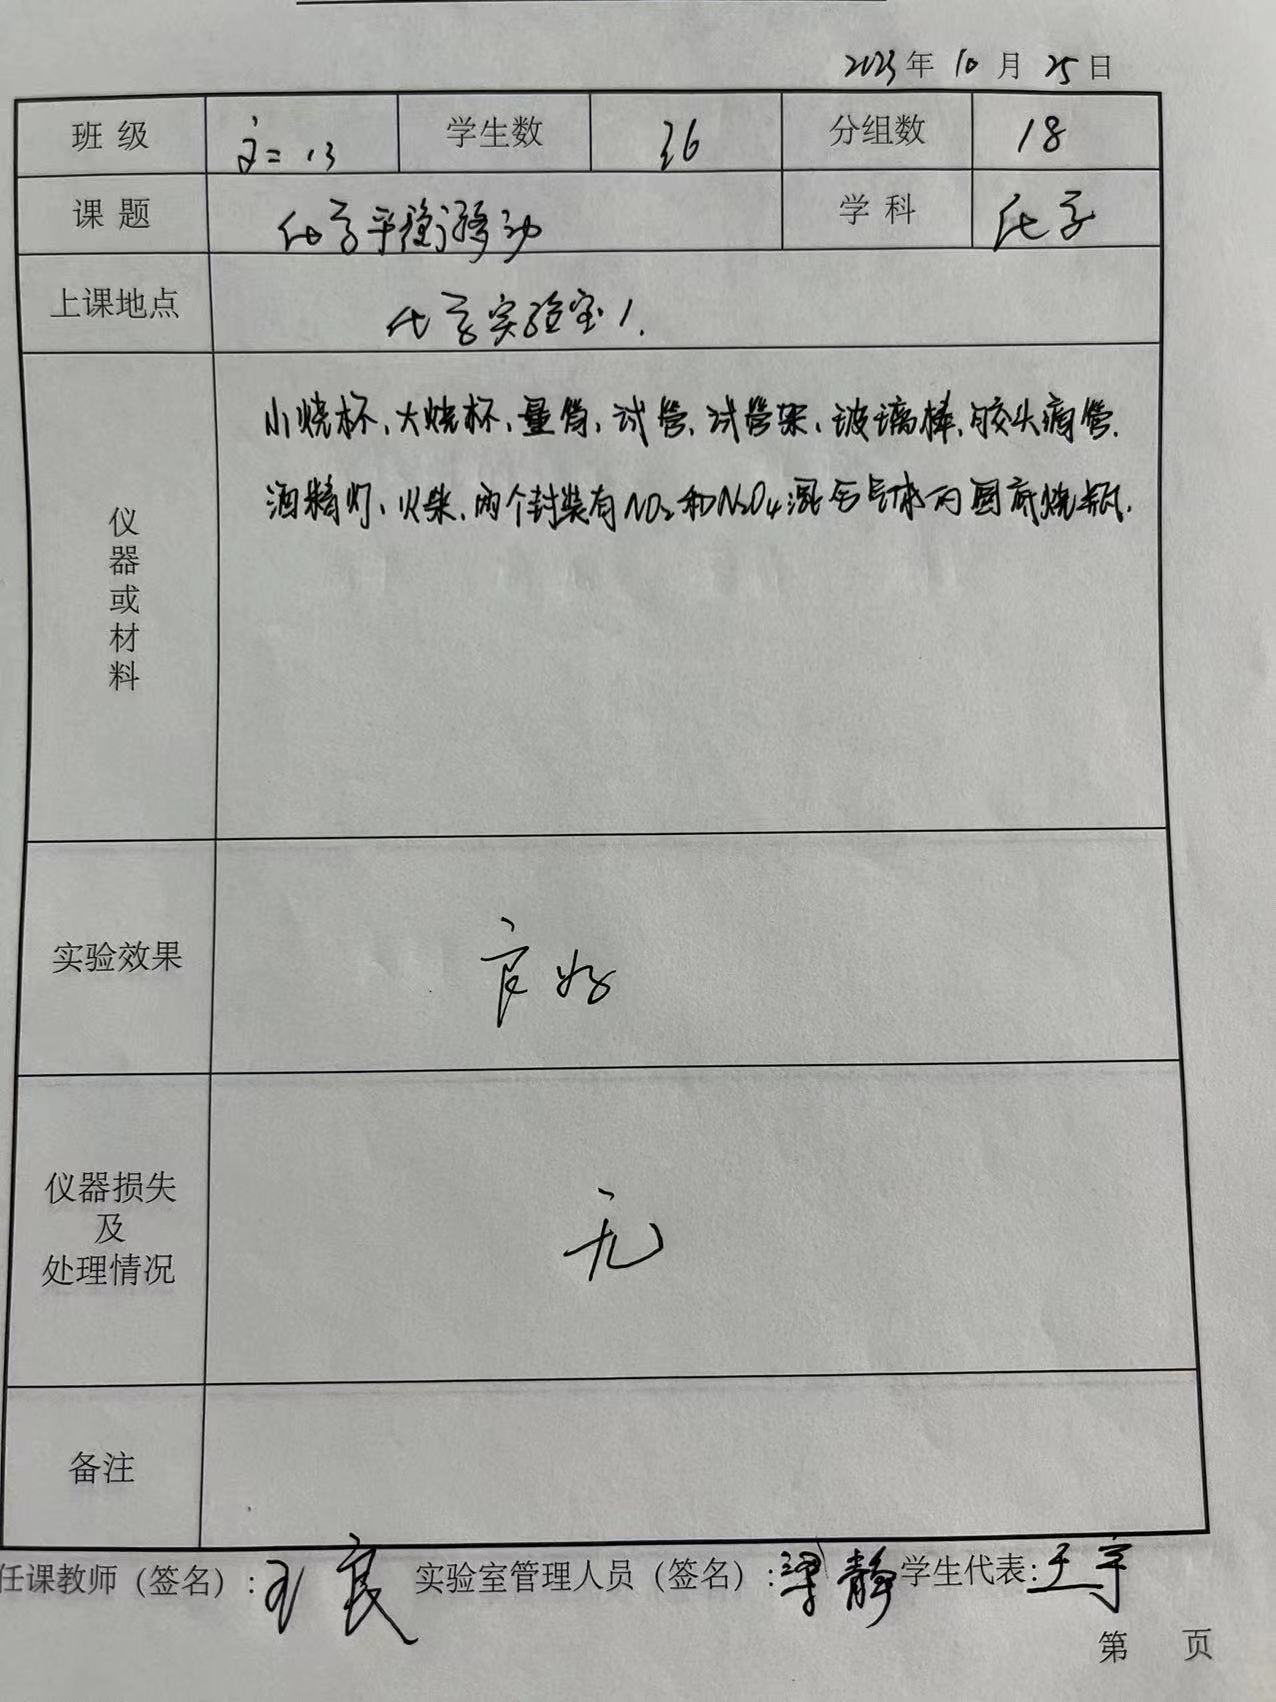 2023年10月25日
班 级 高二 13 学生数 36 分组数 18
课 题 化学平衡移动 学 科 化学
上课地点 化学实验室1.
仪器或材料
小烧杯、大烧杯、量筒、试管、试管架、玻璃棒、胶头滴管、
酒精灯、火柴、两个封装有NO₂和N₂O₄混合气体的圆底烧瓶.
实验效果 良好
仪器损失
及
处理情况
无
备注
任课教师（签名）: 王良 实验室管理人员（签名）: 梁静 学生代表: 王宇
第 页